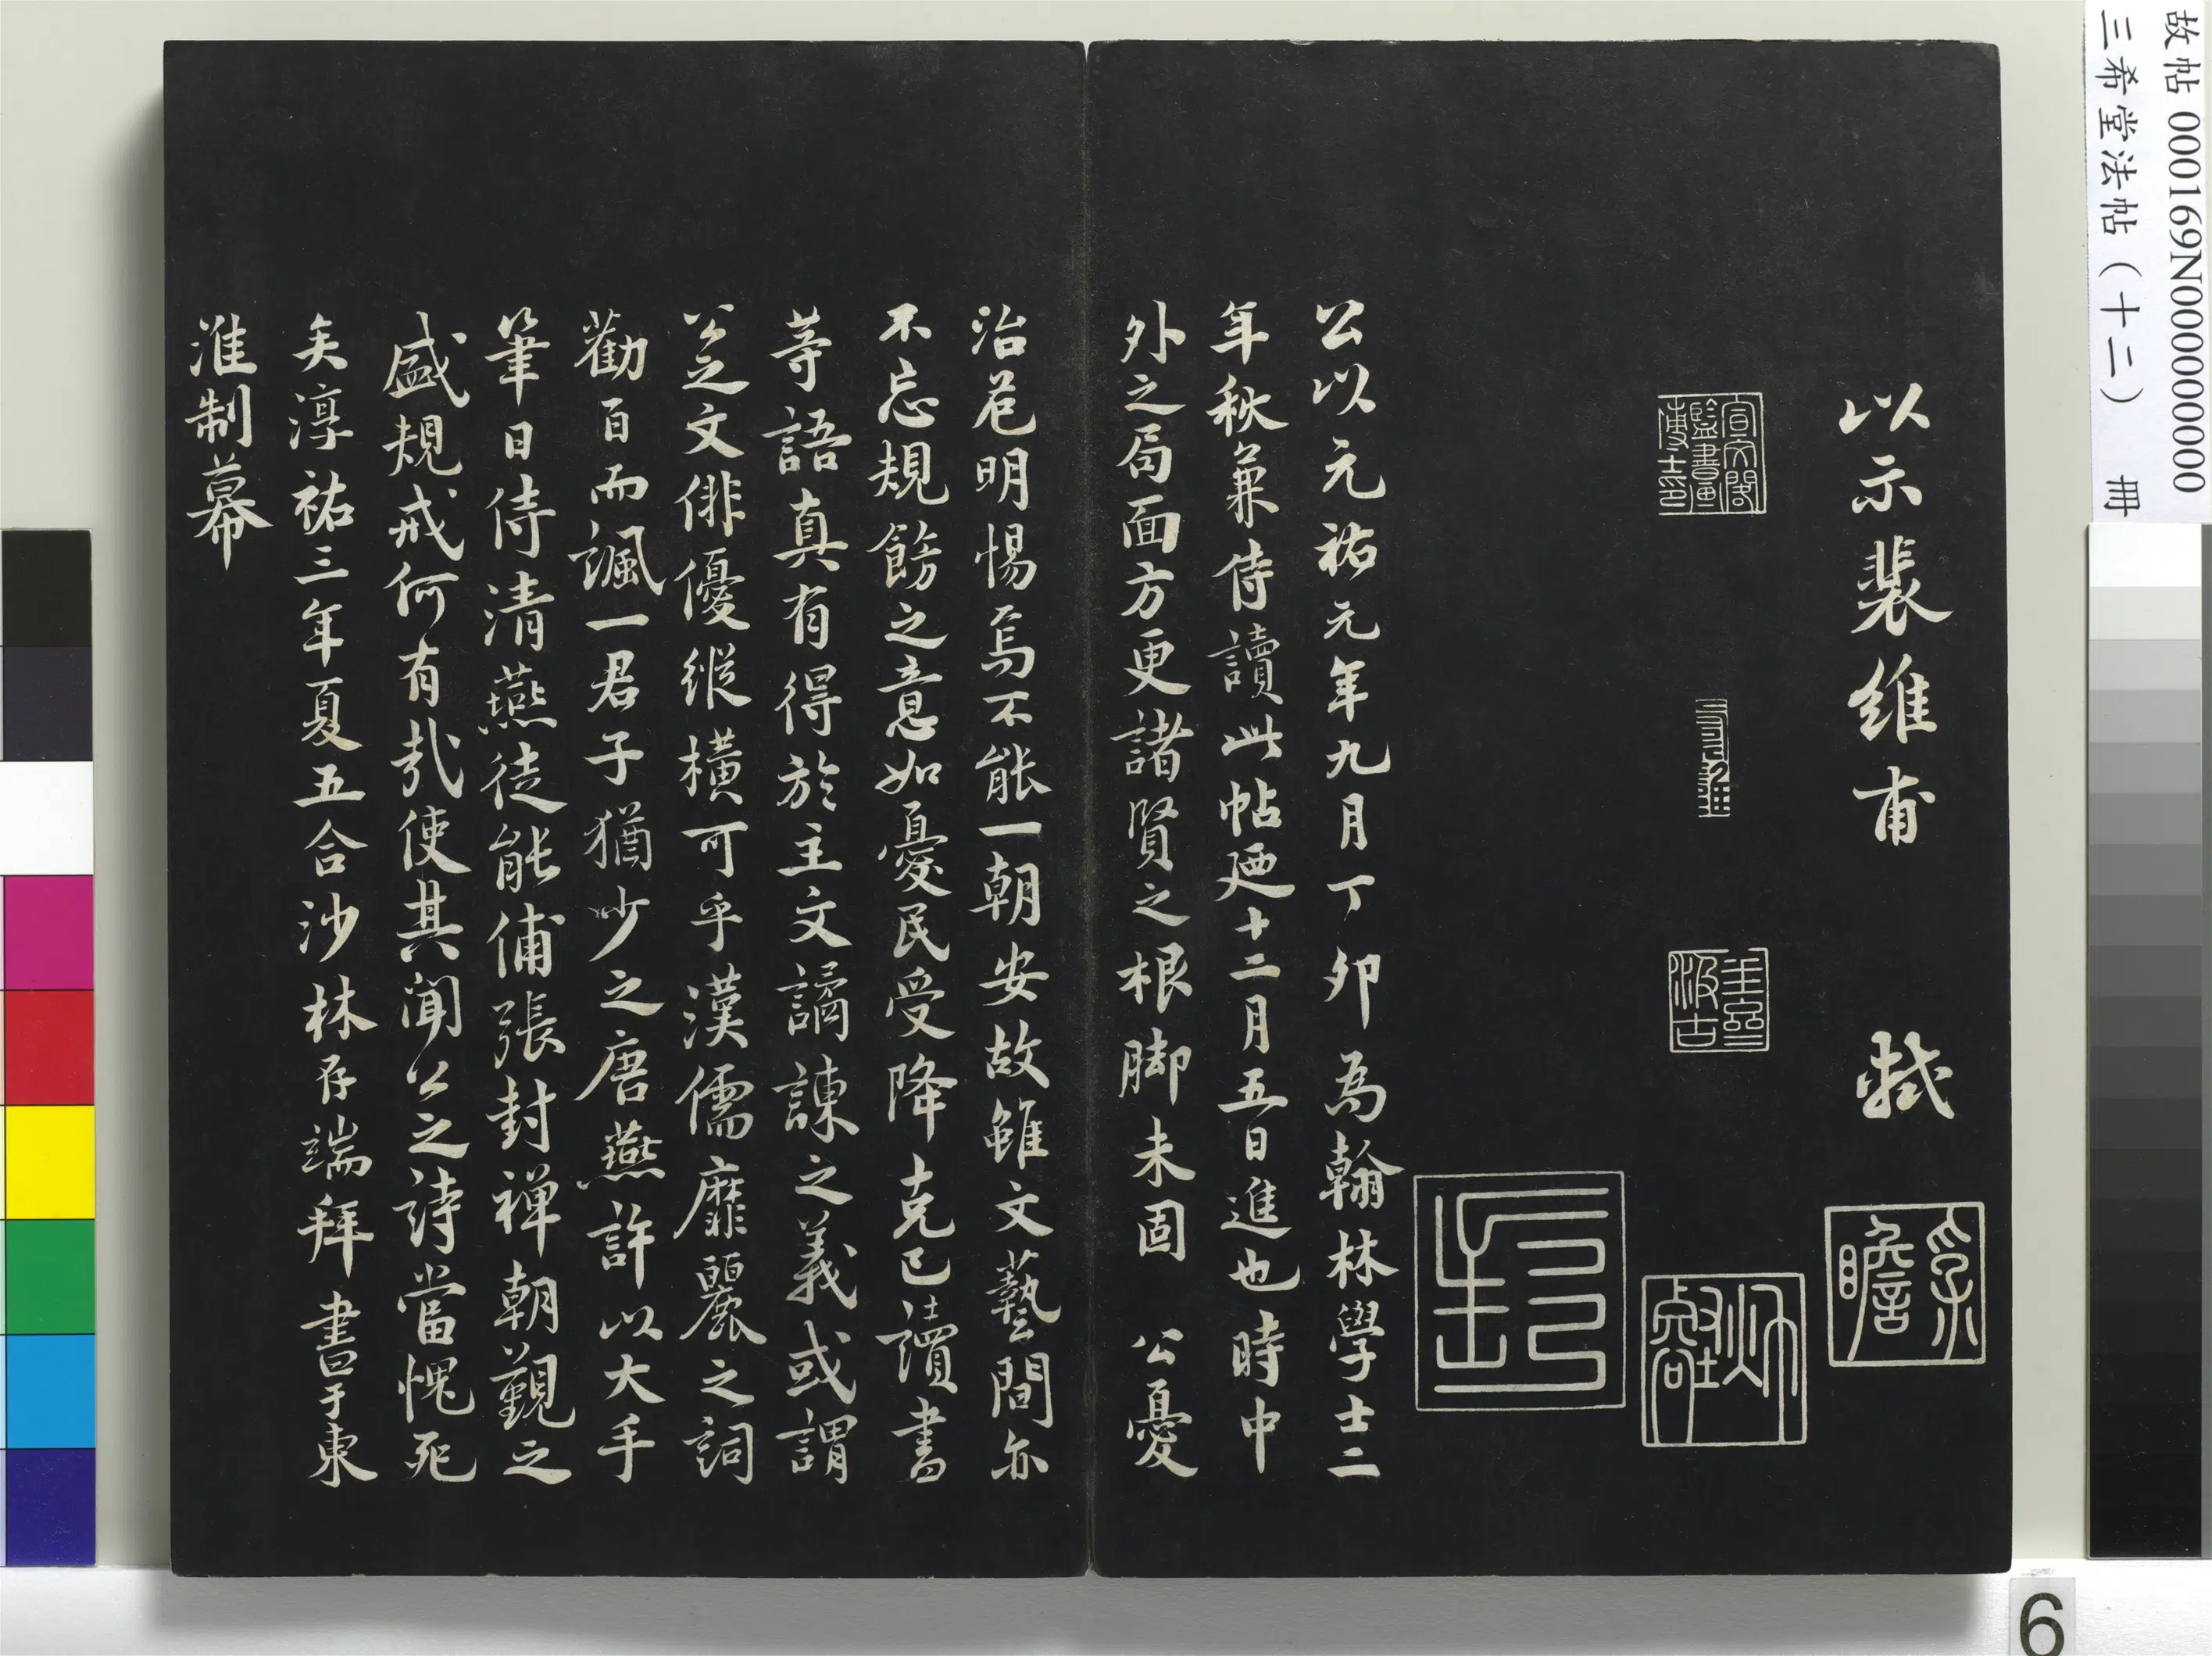 故帖 000169N000000000
三希堂法帖（十二） 冊
以示裴維甫 軾
宣文閣監書畫博士印
公以元祐元年九月丁卯為翰林學士二
年秋兼侍讀此帖廼十二月五日進也時中
外之局面方更諸賢之根脚未固 公憂
治危明惕焉不能一朝安故雖文藝間亦
不忘規餝之意如憂民受降克己讀書
等語真有得於主文譎諫之義或謂
公之文俳優縱橫可乎漢儒靡麗之詞
勸百而諷一君子猶少之唐燕許以大手
筆日侍清燕徒能俌張封禅朝觀之
盛規戒何有哉使其聞公之詩當愧死
矣淳祐三年夏五合沙林存端拜書于東
淮制幕
6